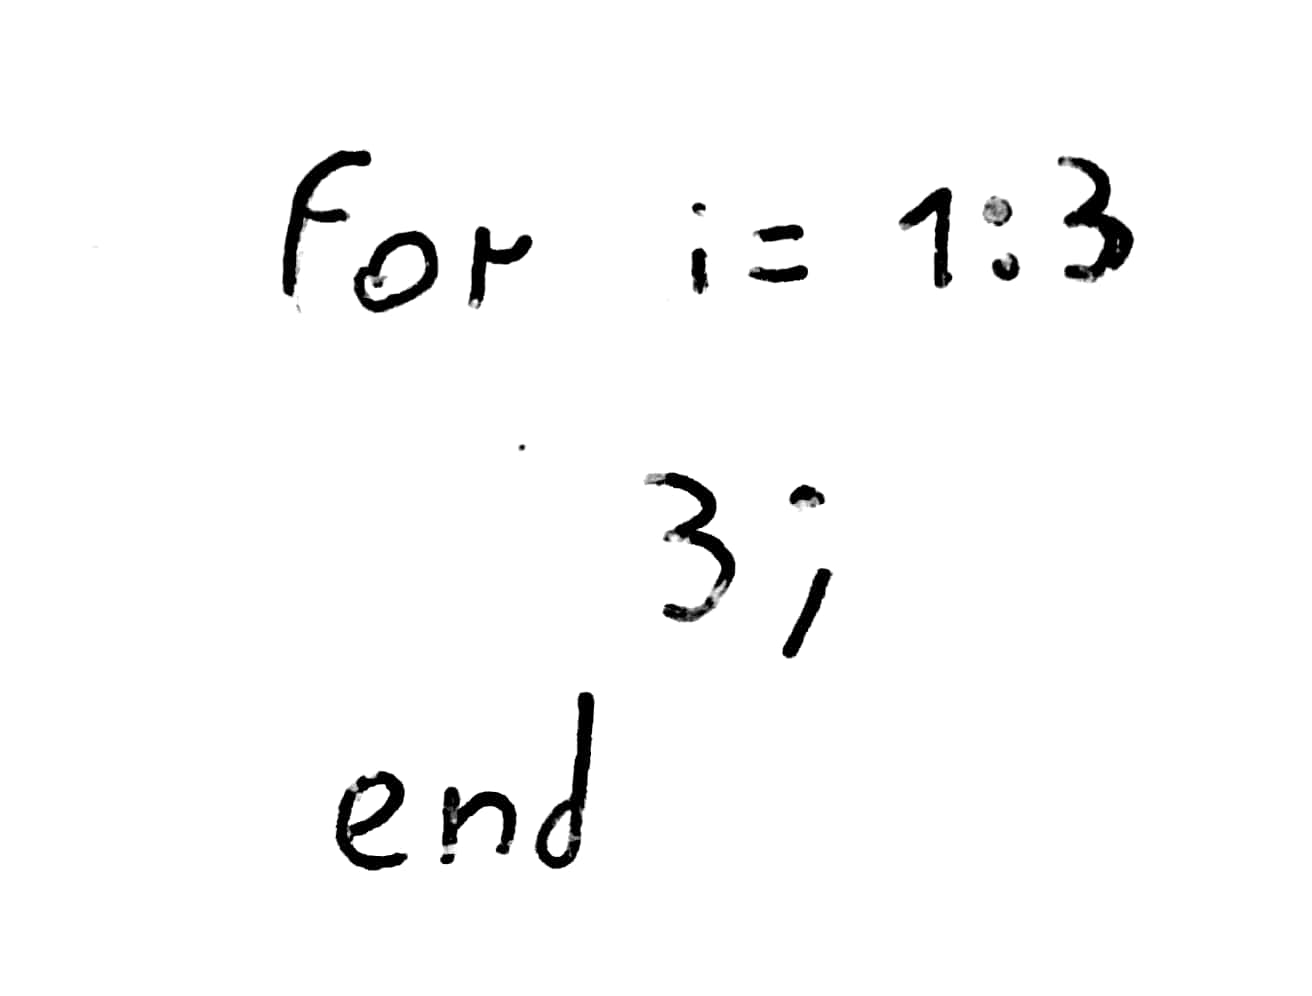 for i= 1:3
3;
end